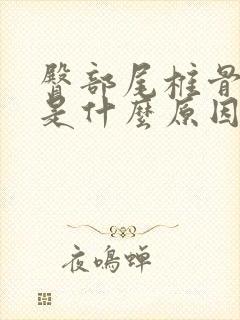 臀部尾椎骨
是什麼原因
夜鳴蝉